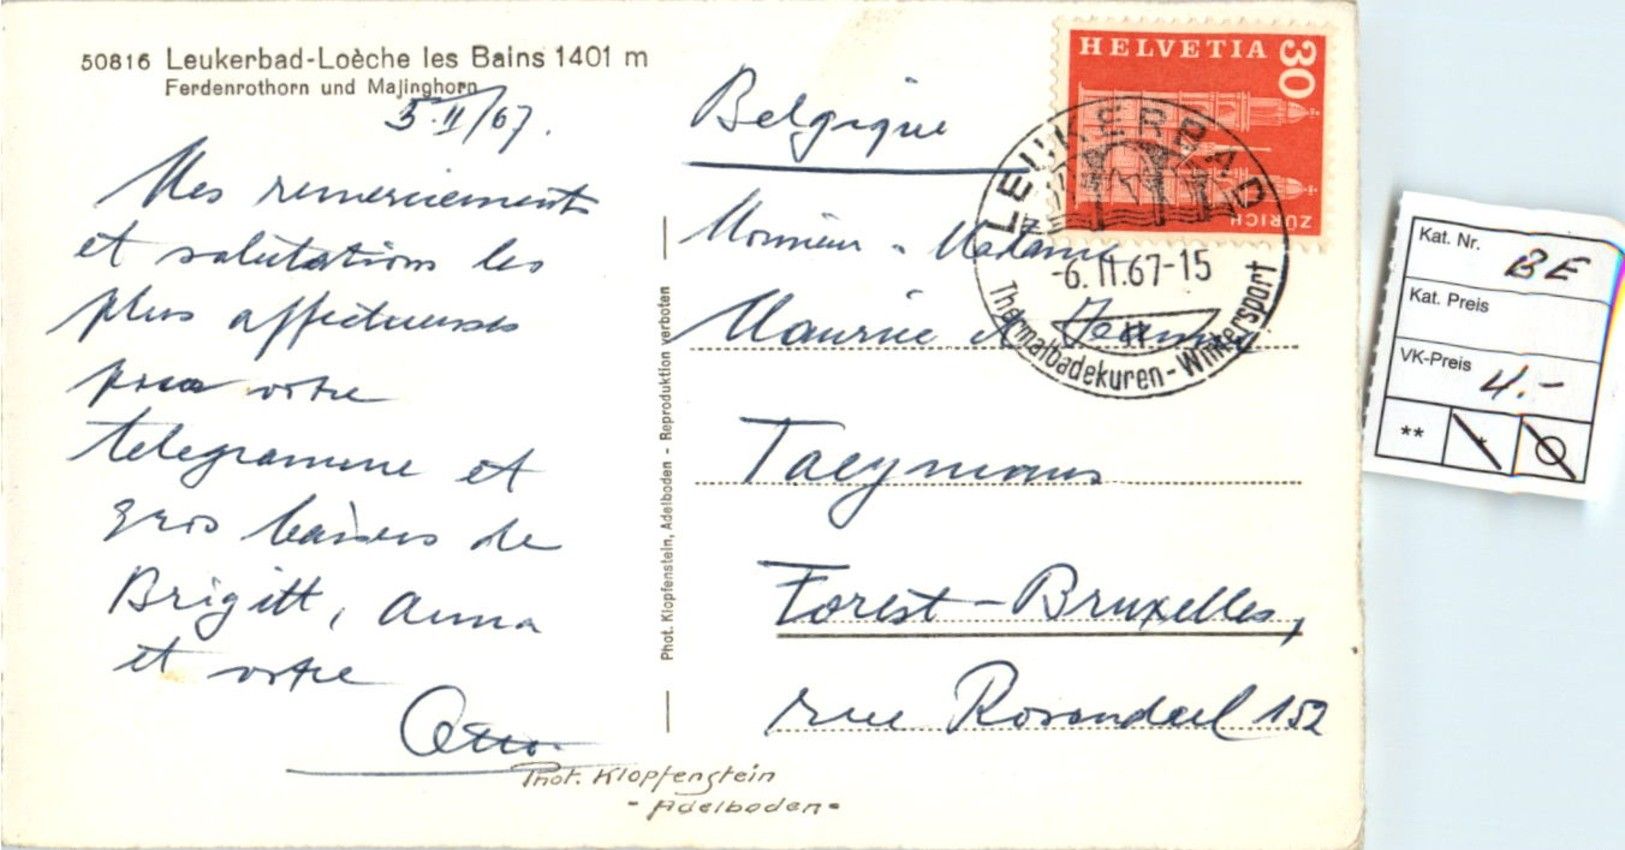 50816 Leukerbad-Loèche les Bains 1401 m
Ferdenrothorn und Majinghorn
5.II/67.
Mes remerciements
et salutations les
plus affectueuses
pour votre
telegramme et
gros baisers de
Brigitt, Anna
et votre
Otto.
Phot. Klopfenstein
- Adelboden -
Phot. Klopfenstein, Adelboden - Reproduktion verboten
Belgique
Monsieur - Madame
Maurice et Jeanne
Taeymans
Forest-Bruxelles,
rue Rosendael 152
HELVETIA 30
ZÜRICH
LEUKERBAD
-6.II.67-15
Thermalbadekuren-Wintersport
Kat. Nr. BE
Kat. Preis
VK-Preis 4.-
** *